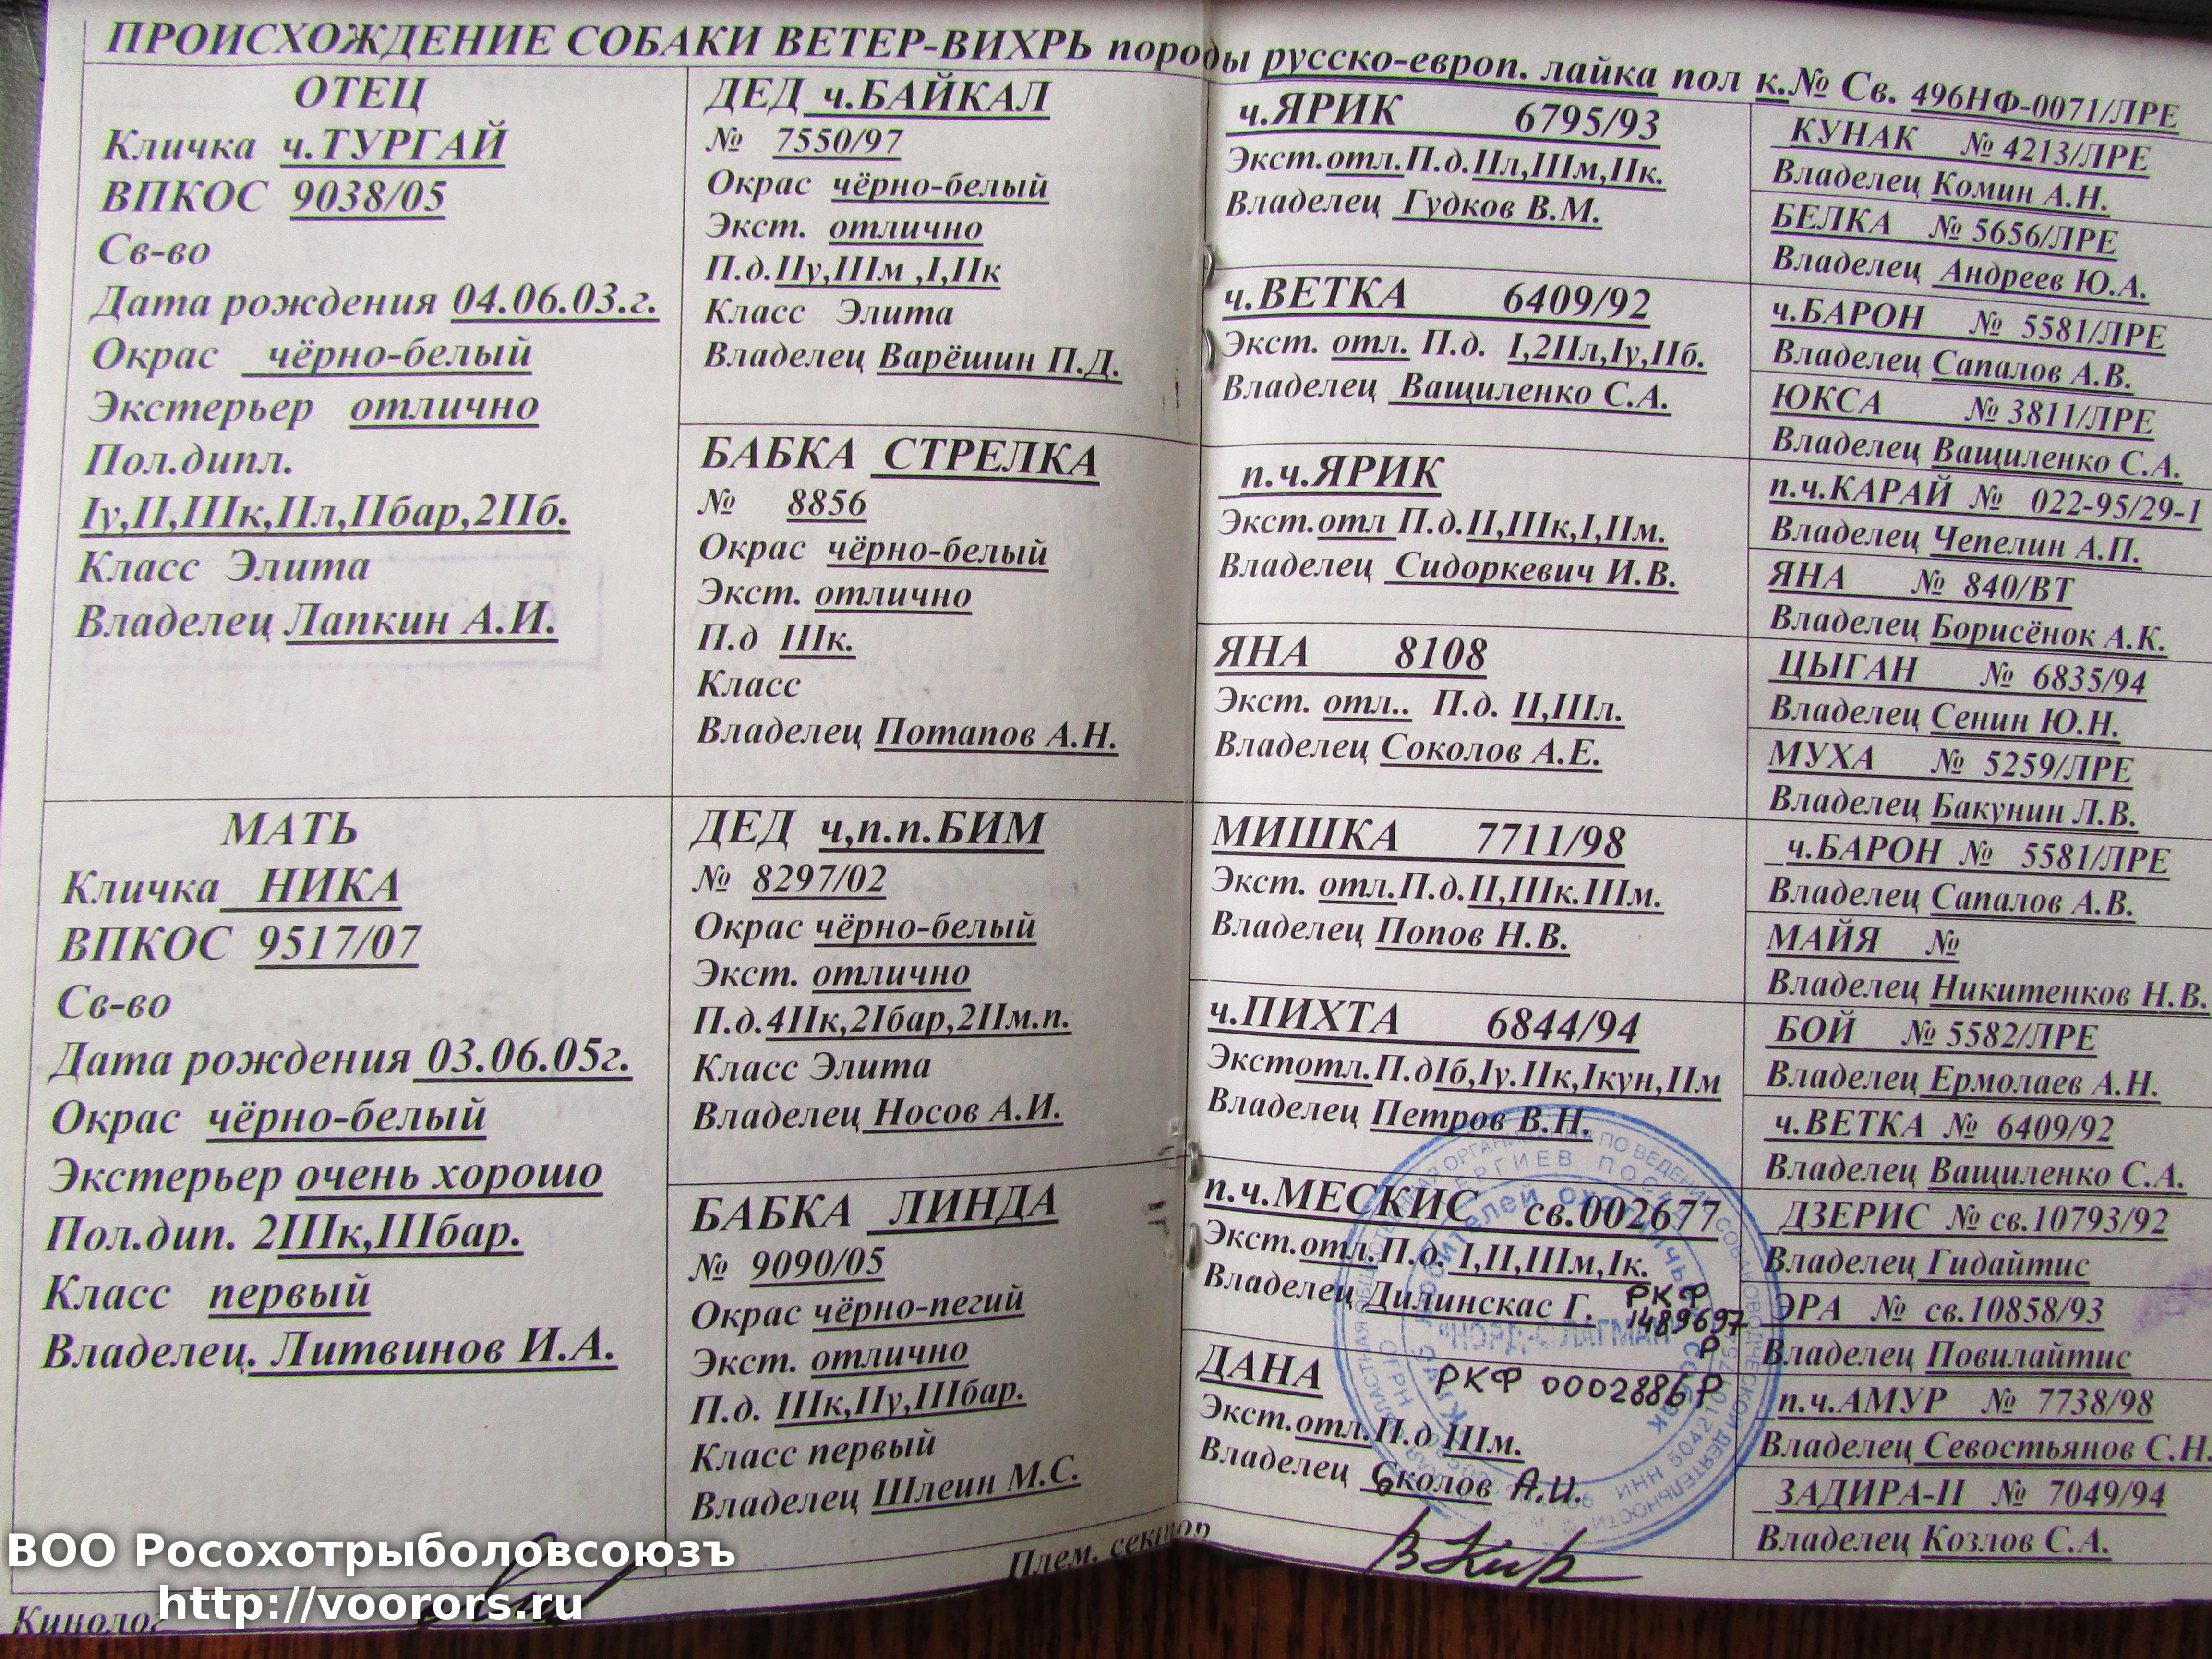 ПРОИСХОЖДЕНИЕ СОБАКИ ВЕТЕР-ВИХРЬ породы русско-европ. лайка пол к.№ Св. 496НФ-0071/ЛРЕ
ОТЕЦ
Кличка ч.ТУРГАЙ
ВПКОС 9038/05
Св-во
Дата рождения 04.06.03.г.
Окрас чёрно-белый
Экстерьер отлично
Пол.дипл.
Iу,II,IIIк,IIл,IIбар,2IIб.
Класс Элита
Владелец Лапкин А.И.
МАТЬ
Кличка НИКА
ВПКОС 9517/07
Св-во
Дата рождения 03.06.05г.
Окрас чёрно-белый
Экстерьер очень хорошо
Пол.дип. 2IIIк,IIIбар.
Класс первый
Владелец. Литвинов И.А.
ДЕД ч.БАЙКАЛ
№ 7550/97
Окрас чёрно-белый
Экст. отлично
П.д.IIу,IIIм ,I,IIк
Класс Элита
Владелец Варёшин П.Д.
БАБКА СТРЕЛКА
№ 8856
Окрас чёрно-белый
Экст. отлично
П.д IIIк.
Класс
Владелец Потапов А.Н.
ДЕД ч,п.п.БИМ
№ 8297/02
Окрас чёрно-белый
Экст. отлично
П.д.4IIк,2Iбар,2IIм.п.
Класс Элита
Владелец Носов А.И.
БАБКА ЛИНДА
№ 9090/05
Окрас чёрно-пегий
Экст. отлично
П.д. IIIк,IIу,IIIбар.
Класс первый
Владелец Шлеин М.С.
ч.ЯРИК 6795/93
Экст.отл.П.д.IIл,IIIм,IIк.
Владелец Гудков В.М.
ч.ВЕТКА 6409/92
Экст. отл. П.д. I,2IIл,Iу,IIб.
Владелец Ващиленко С.А.
п.ч.ЯРИК
Экст.отл П.д.II,IIIк,I,IIм.
Владелец Сидоркевич И.В.
ЯНА 8108
Экст. отл.. П.д. II,IIIл.
Владелец Соколов А.Е.
МИШКА 7711/98
Экст. отл.П.д.II,IIIк.IIIм.
Владелец Попов Н.В.
ч.ПИХТА 6844/94
Экстотл.П.дIб,Iу.IIк,Iкун,IIм
Владелец Петров В.Н.
п.ч.МЕСКИС св.002677
Экст.отл.П.д. I,II,IIIм,Iк.
Владелец Дилинскас Г. РКФ
1489697
Р
ДАНА РКФ 0002886Р
Экст.отл.П.д IIIм.
Владелец Сколов А.И.
КУНАК № 4213/ЛРЕ
Владелец Комин А.Н.
БЕЛКА № 5656/ЛРЕ
Владелец Андреев Ю.А.
ч.БАРОН № 5581/ЛРЕ
Владелец Сапалов А.В.
ЮКСА № 3811/ЛРЕ
Владелец Ващиленко С.А.
п.ч.КАРАЙ № 022-95/29-1
Владелец Чепелин А.П.
ЯНА № 840/ВТ
Владелец Борисёнок А.К.
ЦЫГАН № 6835/94
Владелец Сенин Ю.Н.
МУХА № 5259/ЛРЕ
Владелец Бакунин Л.В.
ч.БАРОН № 5581/ЛРЕ
Владелец Сапалов А.В.
МАЙЯ №
Владелец Никитенков Н.В.
БОЙ № 5582/ЛРЕ
Владелец Ермолаев А.Н.
ч.ВЕТКА № 6409/92
Владелец Ващиленко С.А.
ДЗЕРИС № св.10793/92
Владелец Гидайтис
ЭРА № св.10858/93
Владелец Повилайтис
п.ч.АМУР № 7738/98
Владелец Севостьянов С.Н.
ЗАДИРА-II № 7049/94
Владелец Козлов С.А.
Кинолог
Плем. сектор
ВОО Росохотрыболовсоюзъ
http://voorors.ru